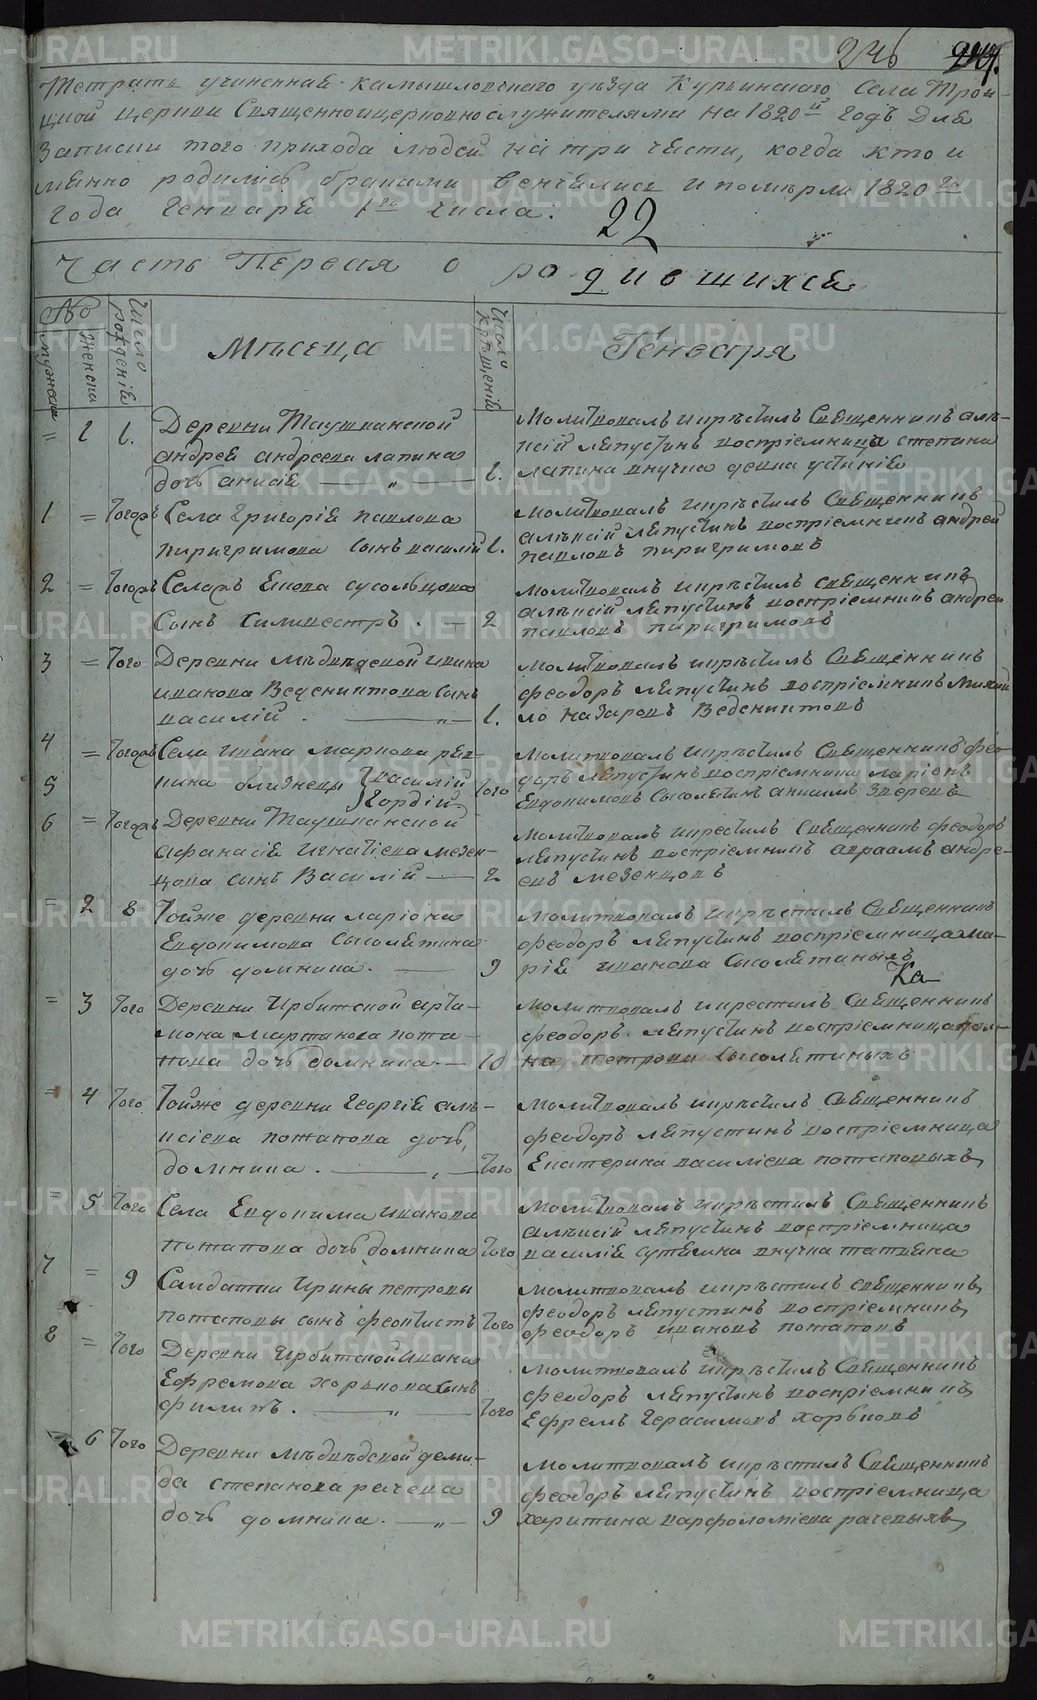 246
Тетрать учиненная камышловского уѣзда Курьинского Села Трои-
цкой церкви Священноицерковнослужителями на 1820й годъ Для
Записки того прихода людей на три части, когда кто и
мянно родились браками венчались и померли 1820го
года генваря 1го числа:
22
Часть Первая о родившихся
№
мужска
женска
Число рожденiя
Мѣсеца
Число крещенiя
Генваря
= 1 1. Деревни Таушканской
андрея андреева лапина
дочь анисiя — 1.
Молитвовалъ икрѣстилъ Священникъ алѣ-
ксiй ляпустинъ воспрiемница степана
лапина внучка девка устинiя
1 = Тогожъ Села григорiя павлова
пиригримова сынъ василiй 1.
молитвовалъ икрѣстилъ Священникъ
алѣксiй ляпустинъ воспрiемникъ андрей
павловъ пиригримовъ
2 = Тогожъ Селажъ Екова сусольцова
Сынъ Силивестръ. — 2
молитвовалъ икрѣстилъ священникъ
алѣксiй ляпустинъ воспрiемникъ андрей
павловъ пиригримовъ
3 = Того Деревни мѣдвѣдевой ивана
иванова Ведениктова сынъ
василiй. — 1.
молитвовалъ икрѣстилъ Священникъ
феодоръ ляпустинъ воспрiемникъ михай
ло назаровъ Ведениктовъ
4 = Тогожъ Села ивана маркова рѣп-
5 кина близнецы василiй
гордiй Того
молитвовалъ икрѣстилъ Священникъ фео-
доръ ляпустинъ воспрiемники ларiонъ
Евдокимовъ Сысолятинъ анисимъ Зверевъ
6 = Тогожъ Деревни Таушканской
афанасiя игнатiева мезен-
цова сынъ Василiй — 2
молитвовалъ икрестилъ Священникъ феодоръ
ляпустинъ воспрiемникъ авраамъ андре-
евъ мезенцовъ
= 2 8 Тойже деревни ларiона
Евдокимова Сысолятина
дочь домника. — 9
молитвовалъ икрѣстилъ Священникъ
феодоръ ляпустинъ воспрiемница ма-
рiя иванова Сысолятиныхъ
ка
= 3 Того Деревни Ирбитской арта-
мона мартынова пота-
пова дочь домника. — 10
молитвовалъ икрестилъ Священникъ
феодоръ ляпустинъ воспрiемница
на петрова Сысолятиныхъ
= 4 Того Тойже деревни георгiя алѣ-
ксiева потапова дочь,
домника. — Того
молитвовалъ икрѣстилъ Священникъ
феодоръ ляпустинъ воспрiемница
Екатерина василiева потаповыхъ
= 5 Того Села Евдокима иванова
потапова дочь домника Того
молитвовалъ икрѣстилъ Священникъ
алѣксiй ляпустинъ воспрiемница
василiя сутягина внучка татiяна
7 = 9 Салдатки Ирины петровы
потаповы сынъ феоктистъ Того
молитвовалъ икрѣстилъ священникъ
феодоръ ляпустинъ воспрiемникъ
феодоръ ивановъ потаповъ
8 = Того Деревни Ирбитской ивана
Ефремова хорькова сынъ
филипъ. — Того
молитвовалъ икрѣстилъ Священникъ
феодоръ ляпустинъ воспрiемникъ
Ефремъ герасимовъ хорьковъ
6 Того Деревни мѣдвѣдевской деми-
да степанова рачева
дочь домника. — 9
молитвовалъ икрѣстилъ Священникъ
феодоръ ляпустинъ воспрiемница
харитина варфоломiева рачевыхъ
METRIKI.GASO-URAL.RU